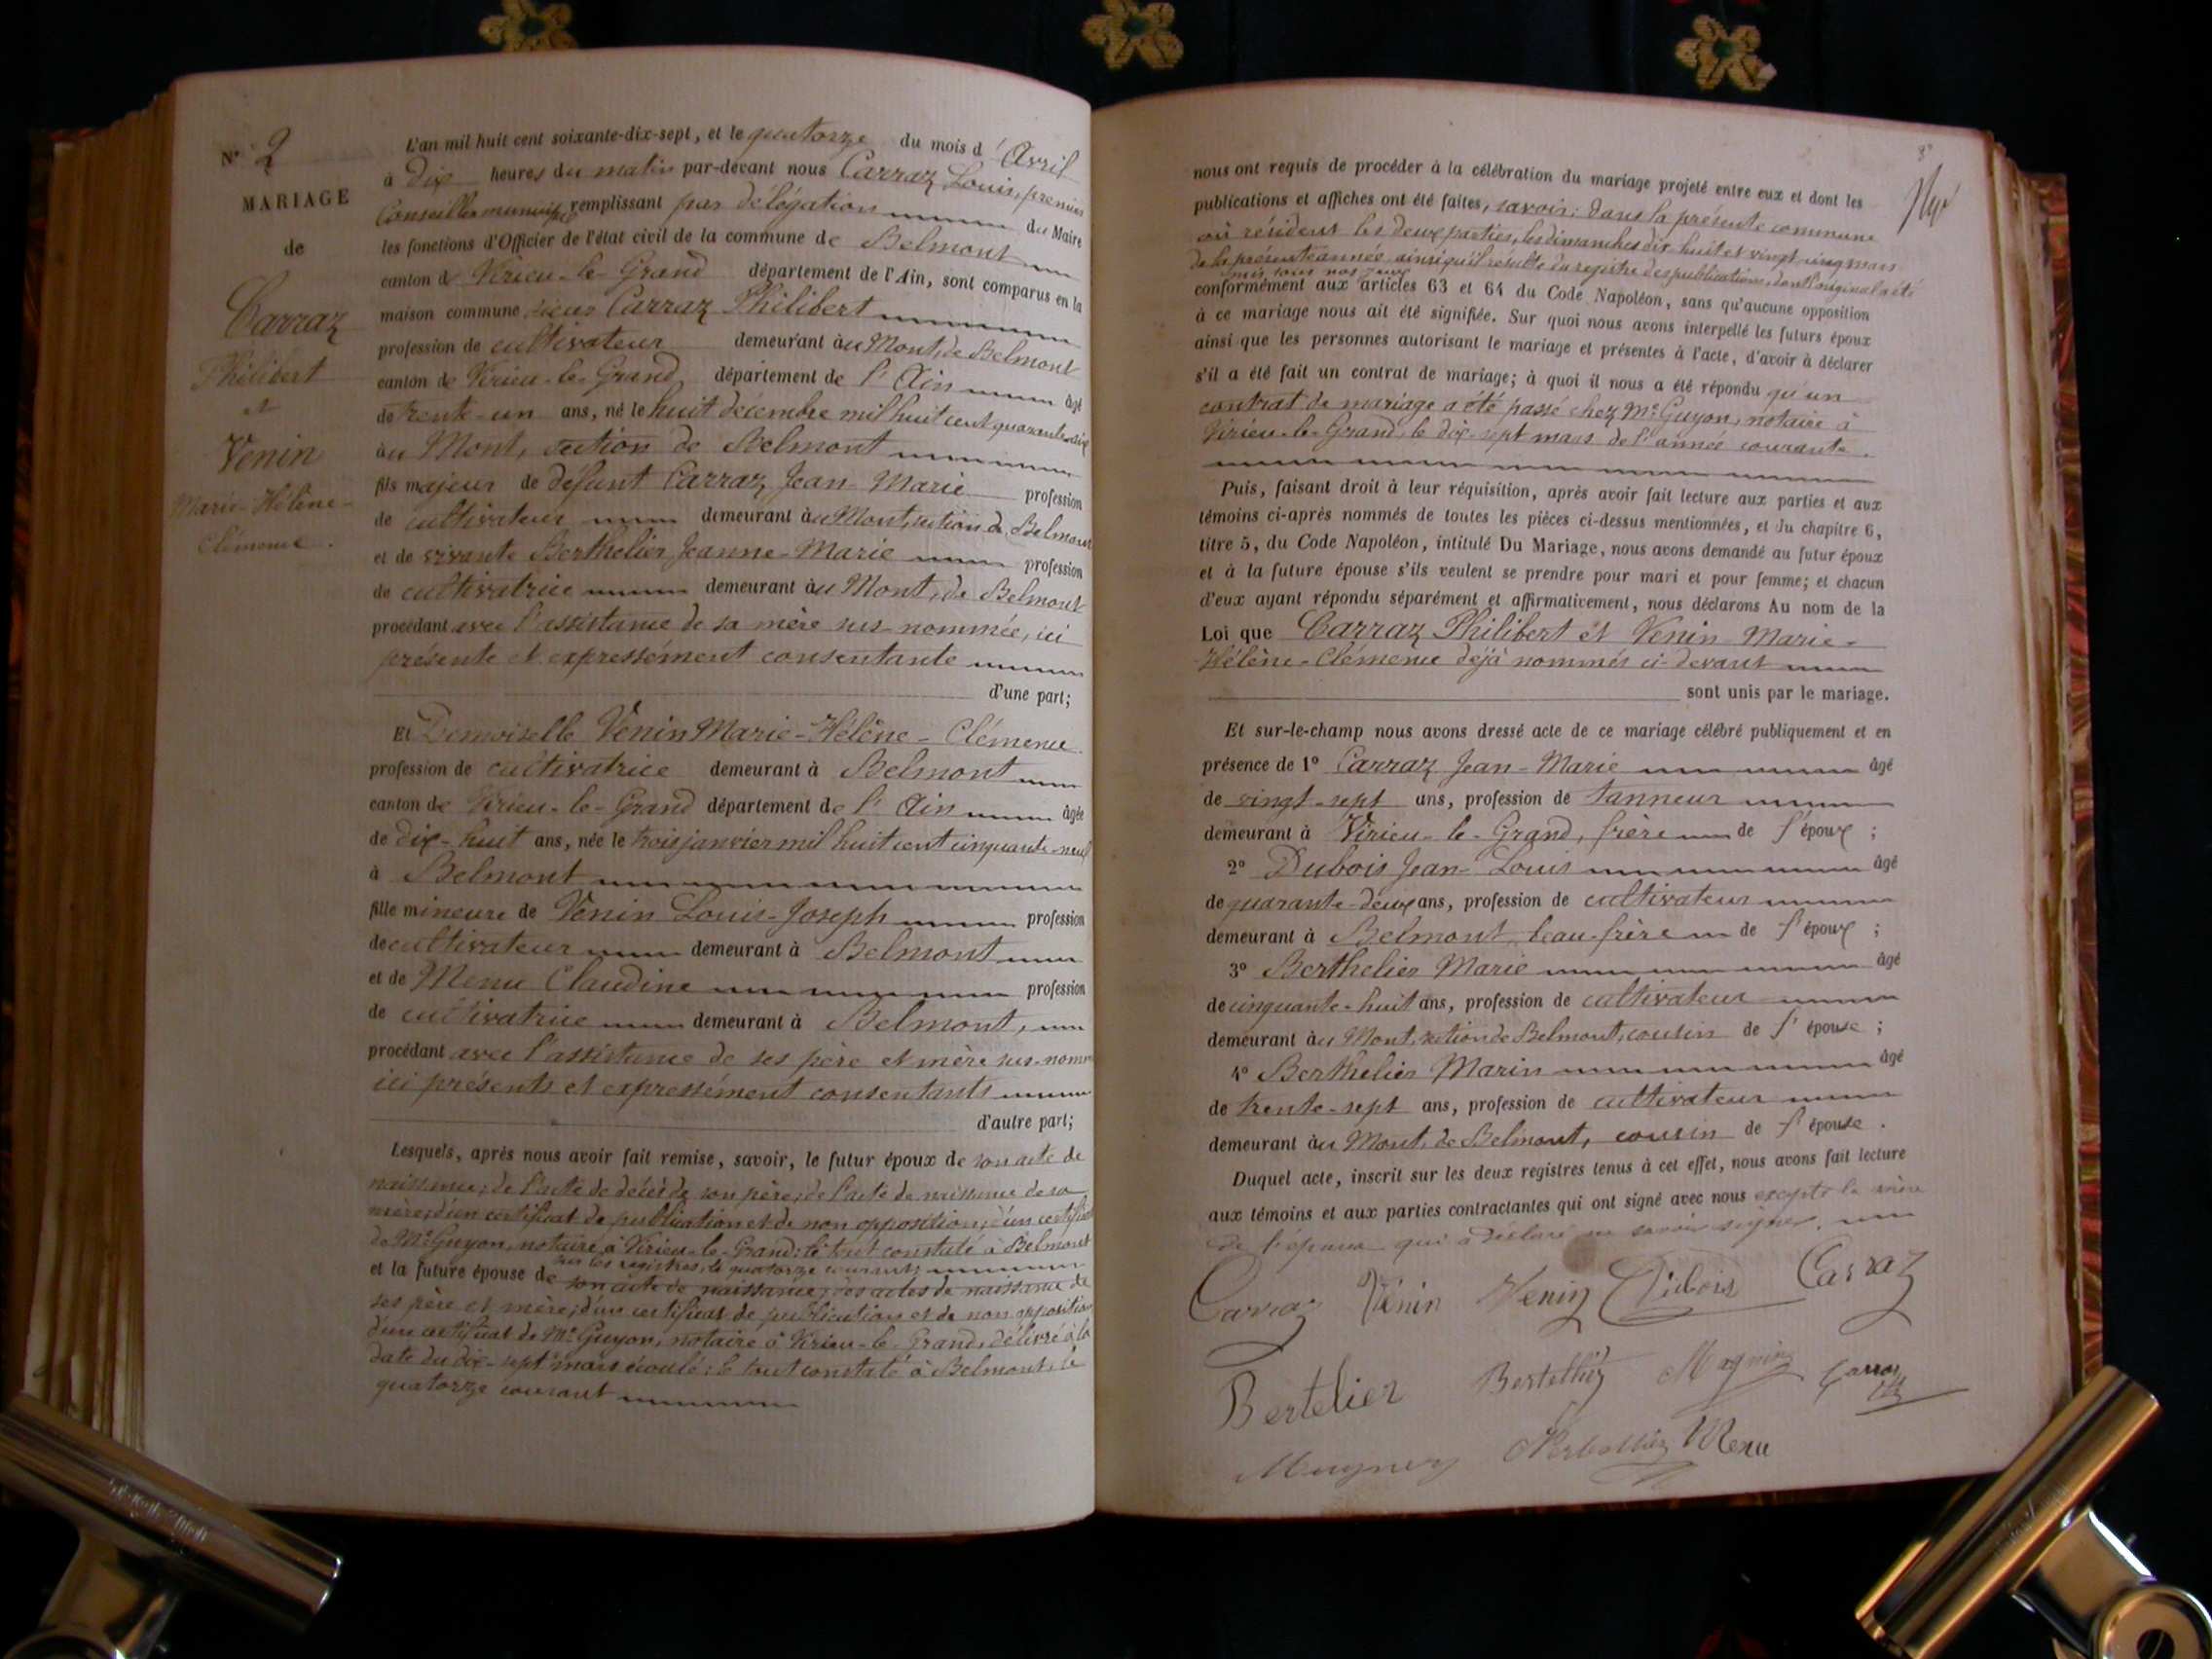 N° 2
MARIAGE
de
Carraz
Philibert
et
Venin
Marie-Hélène-
Clémence.
L'an mil huit cent soixante-dix-sept, et le quatorze du mois d'Avril
à dix heures du matin par-devant nous Carraz Louis, premier
Conseiller municipal remplissant par délégation du Maire
les fonctions d'Officier de l'état civil de la commune de Belmont
canton de Virieu-le-Grand département de l'Ain, sont comparus en la
maison commune sieur Carraz Philibert
profession de cultivateur demeurant au Mont, de Belmont
canton de Virieu-le-Grand département de l'Ain âgé
de trente-un ans, né le huit décembre mil huit cent quarante-cinq
au Mont, section de Belmont
fils majeur de défunt Carraz Jean-Marie profession
de cultivateur demeurant au Mont, section de Belmont
et de vivante Berthelier Jeanne-Marie profession
de cultivatrice demeurant au Mont, de Belmont
procédant avec l'assistance de sa mère sus-nommée, ici
présente et expressément consentante
d'une part;
Et Demoiselle Venin Marie-Hélène-Clémence.
profession de cultivatrice demeurant à Belmont
canton de Virieu-le-Grand département de l'Ain âgée
de dix-huit ans, née le trois janvier mil huit cent cinquante-neuf
à Belmont
fille mineure de Venin Louis-Joseph profession
de cultivateur demeurant à Belmont
et de Menu Claudine profession
de cultivatrice demeurant à Belmont,
procédant avec l'assistance de ses père et mère sus-nommés
ici présents et expressément consentants
d'autre part;
Lesquels, après nous avoir fait remise, savoir, le futur époux de son acte de
naissance; de l'acte de décès de son père; de l'acte de naissance de sa
mère; d'un certificat de publication et de non opposition; d'un certificat
de Me Guyon, notaire à Virieu-le-Grand: le tout constaté à Belmont
sur les registres, le quatorze courant;
et la future épouse de son acte de naissance; des actes de naissance de
ses père et mère; d'un certificat de publication et de non opposition
d'un certificat de Me Guyon, notaire à Virieu-le-Grand, délivré à la
date du dix-sept mars écoulé: le tout constaté à Belmont, le
quatorze courant
nous ont requis de procéder à la célébration du mariage projeté entre eux et dont les
publications et affiches ont été faites, savoir: dans la présente commune
où résident les deux parties, les dimanches dix-huit et vingt-cinq mars
de la présente année ainsi qu'il résulte du registre des publications, dont l'original a été
mis sous nos yeux
conformément aux articles 63 et 64 du Code Napoléon, sans qu'aucune opposition
à ce mariage nous ait été signifiée. Sur quoi nous avons interpellé les futurs époux
ainsi que les personnes autorisant le mariage et présentes à l'acte, d'avoir à déclarer
s'il a été fait un contrat de mariage; à quoi il nous a été répondu qu'un
contrat de mariage a été passé chez Me Guyon, notaire à
Virieu-le-Grand, le dix-sept mars de l'année courante.
Puis, faisant droit à leur réquisition, après avoir fait lecture aux parties et aux
témoins ci-après nommés de toutes les pièces ci-dessus mentionnées, et du chapitre 6,
titre 5, du Code Napoléon, intitulé Du Mariage, nous avons demandé au futur époux
et à la future épouse s'ils veulent se prendre pour mari et pour femme; et chacun
d'eux ayant répondu séparément et affirmativement, nous déclarons Au nom de la
Loi que Carraz Philibert et Venin Marie-
Hélène-Clémence déjà nommés ci-devant
sont unis par le mariage.
Et sur-le-champ nous avons dressé acte de ce mariage célébré publiquement et en
présence de 1° Carraz Jean-Marie âgé
de vingt-sept ans, profession de tanneur
demeurant à Virieu-le-Grand, frère de l'époux;
2° Dubois Jean-Louis âgé
de quarante-deux ans, profession de cultivateur
demeurant à Belmont, beau-frère de l'époux;
3° Berthelier Marie âgé
de cinquante-huit ans, profession de cultivateur
demeurant au Mont, section de Belmont, cousin de l'épouse;
4° Berthelier Marin âgé
de trente-sept ans, profession de cultivateur
demeurant au Mont, de Belmont, cousin de l'épouse.
Duquel acte, inscrit sur les deux registres tenus à cet effet, nous avons fait lecture
aux témoins et aux parties contractantes qui ont signé avec nous excepté la mère
de l'époux qui a déclaré ne savoir signer.
Carraz Vénin Venin Dubois Carraz
Bertelier Bertellier Magnin Carraz
Mugnery Menu